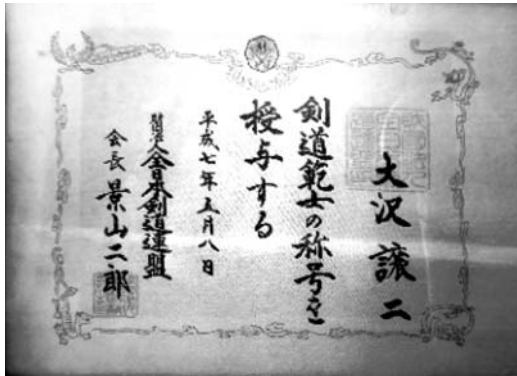 大沢譲二
剣道範士の称号を
授与する
平成七年五月八日
財団法人全日本剣道連盟
会長 景山二郎